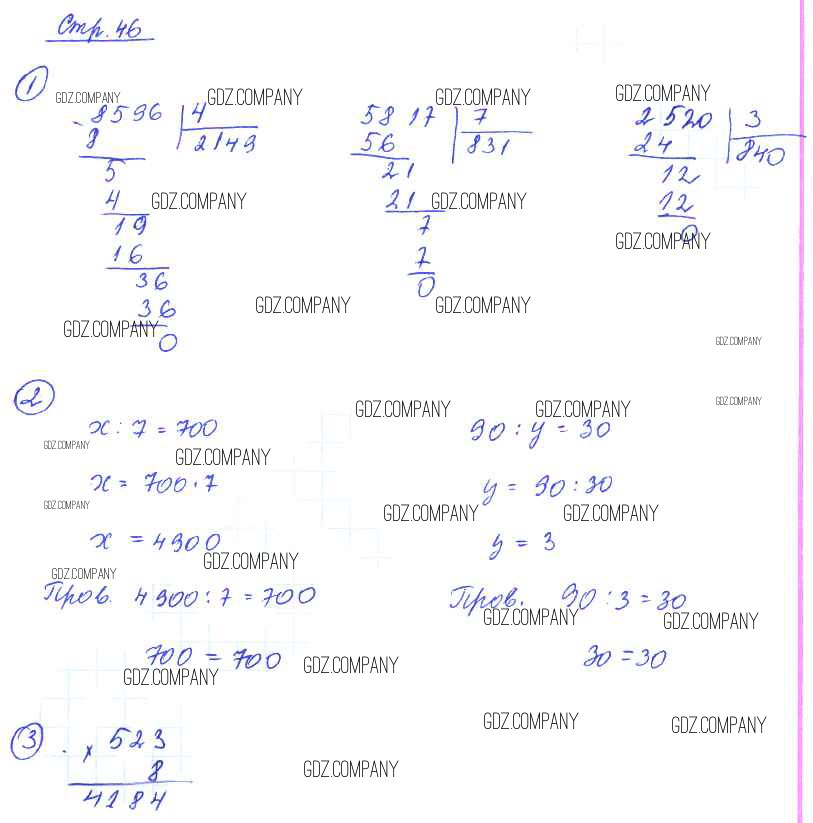 Стр. 46
1
GDZ.COMPANY GDZ.COMPANY GDZ.COMPANY GDZ.COMPANY
8596 | 4 5817 | 7 2520 | 3
- 8 2149 56 831 24 840
5 21 12
4 GDZ.COMPANY 21 GDZ.COMPANY 12
19 7 0
16 7 GDZ.COMPANY
36 0
36 GDZ.COMPANY GDZ.COMPANY
GDZ.COMPANY 0
GDZ.COMPANY
2
GDZ.COMPANY GDZ.COMPANY GDZ.COMPANY
x : 7 = 700 90 : y = 30
GDZ.COMPANY GDZ.COMPANY
x = 700 · 7 y = 90 : 30
GDZ.COMPANY GDZ.COMPANY GDZ.COMPANY
x = 4900 y = 3
GDZ.COMPANY
GDZ.COMPANY
Пров. 4900 : 7 = 700 Пров. 90 : 3 = 30
GDZ.COMPANY GDZ.COMPANY
700 = 700 30 = 30
GDZ.COMPANY GDZ.COMPANY
GDZ.COMPANY GDZ.COMPANY
3
x 523
8
GDZ.COMPANY
4184